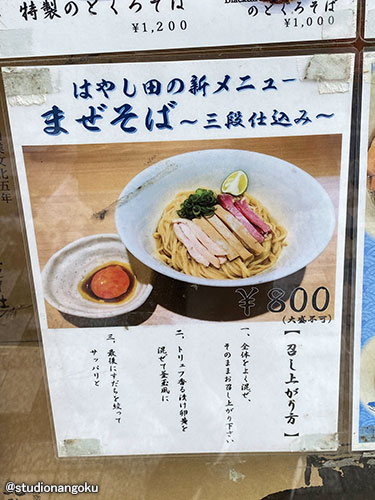 特製のどくろそば
¥1,200
のどくろそば
¥1,000
はやし田の新メニュー
まぜそば～三段仕込み～
¥800
(大盛不可)
【召し上がり方】
一、全体をよく混ぜ、
そのままお召し上がり下さい
二、トリュフ香る漬け卵黄を
混ぜて釜玉風に
三、最後にすだちを絞って
サッパリと
@studionangoku